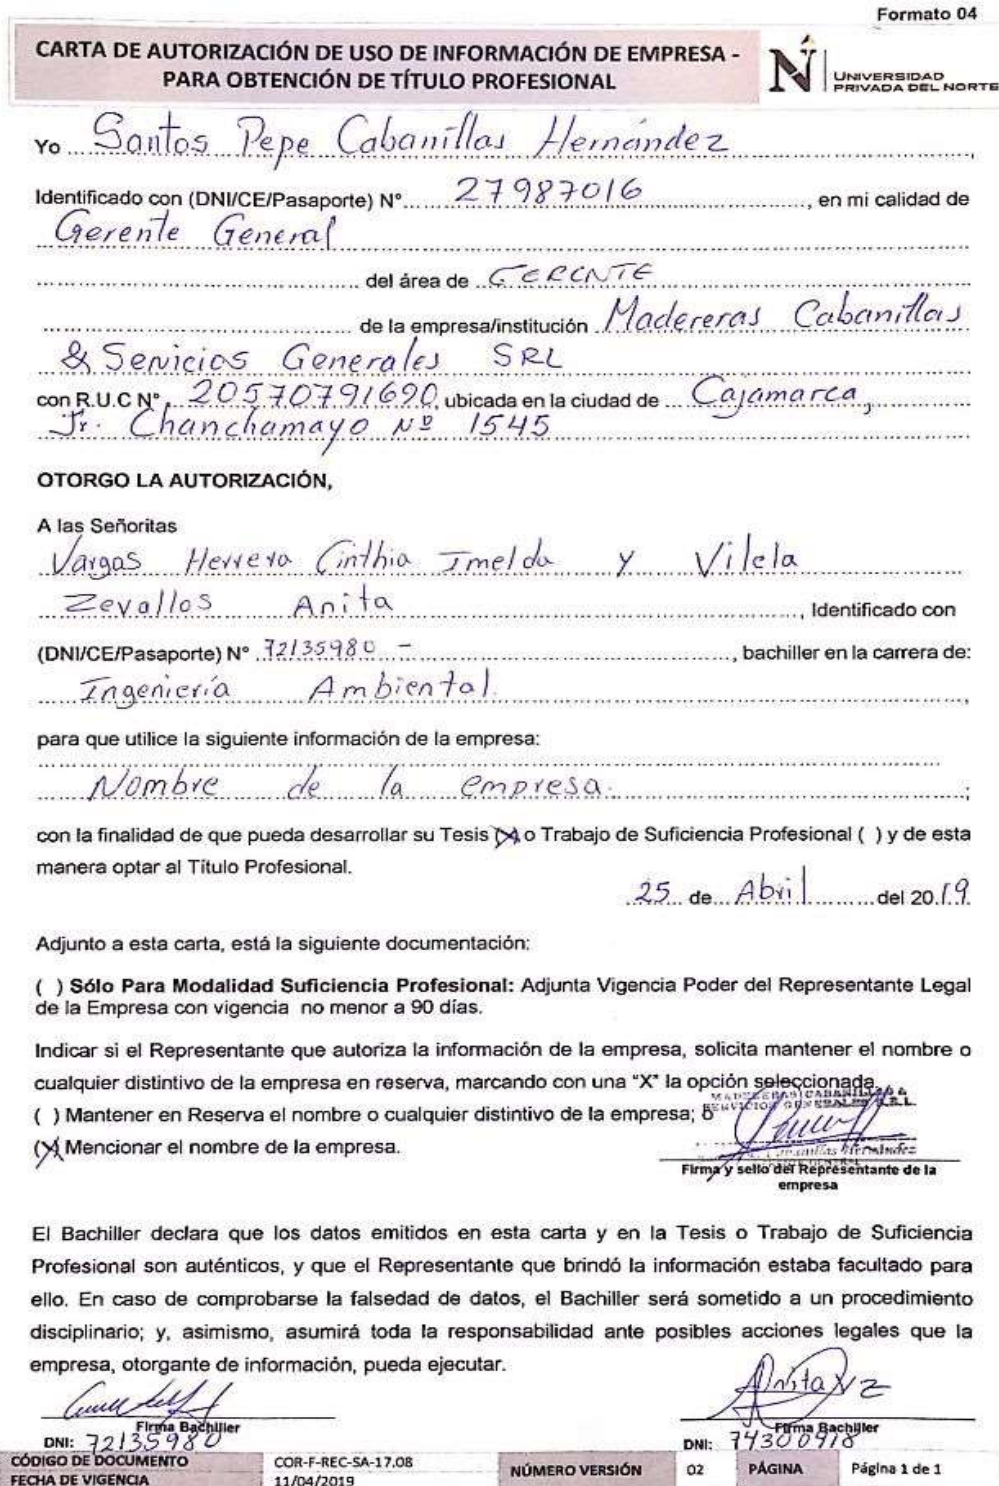 Formato 04
CARTA DE AUTORIZACIÓN DE USO DE INFORMACIÓN DE EMPRESA -
PARA OBTENCIÓN DE TÍTULO PROFESIONAL
N
UNIVERSIDAD
PRIVADA DEL NORTE
Yo Santos Pepe Cabanillas Hernández
Identificado con (DNI/CE/Pasaporte) N° 27987016, en mi calidad de
Gerente General
del área de GERENTE
de la empresa/institución Madereras Cabanillas
& Servicios Generales SRL
con R.U.C N° 20570791690, ubicada en la ciudad de Cajamarca,
Jr. Chanchamayo Nº 1545
OTORGO LA AUTORIZACIÓN,
A las Señoritas
Vargas Herrera Cinthia Imelda y Vilela
Zevallos Anita, Identificado con
(DNI/CE/Pasaporte) N° 72135980 -, bachiller en la carrera de:
Ingeniería Ambiental.
para que utilice la siguiente información de la empresa:
Nombre de la empresa.;
con la finalidad de que pueda desarrollar su Tesis (X) o Trabajo de Suficiencia Profesional ( ) y de esta
manera optar al Título Profesional.
25 de Abril del 2019
Adjunto a esta carta, está la siguiente documentación:
( ) Sólo Para Modalidad Suficiencia Profesional: Adjunta Vigencia Poder del Representante Legal
de la Empresa con vigencia no menor a 90 días.
Indicar si el Representante que autoriza la información de la empresa, solicita mantener el nombre o
cualquier distintivo de la empresa en reserva, marcando con una "X" la opción seleccionada.
MADERERAS CABANILLAS &
SERVICIOS GENERALES S.R.L.
( ) Mantener en Reserva el nombre o cualquier distintivo de la empresa; ó
(X) Mencionar el nombre de la empresa.
Cabanillas Hernández
Firma y sello del Representante de la
empresa
El Bachiller declara que los datos emitidos en esta carta y en la Tesis o Trabajo de Suficiencia
Profesional son auténticos, y que el Representante que brindó la información estaba facultado para
ello. En caso de comprobarse la falsedad de datos, el Bachiller será sometido a un procedimiento
disciplinario; y, asimismo, asumirá toda la responsabilidad ante posibles acciones legales que la
empresa, otorgante de información, pueda ejecutar.
Firma Bachiller
DNI: 72135980
Anita VZ
Firma Bachiller
DNI: 74300918
CÓDIGO DE DOCUMENTO COR-F-REC-SA-17.08 NÚMERO VERSIÓN 02 PÁGINA Página 1 de 1
FECHA DE VIGENCIA 11/04/2019